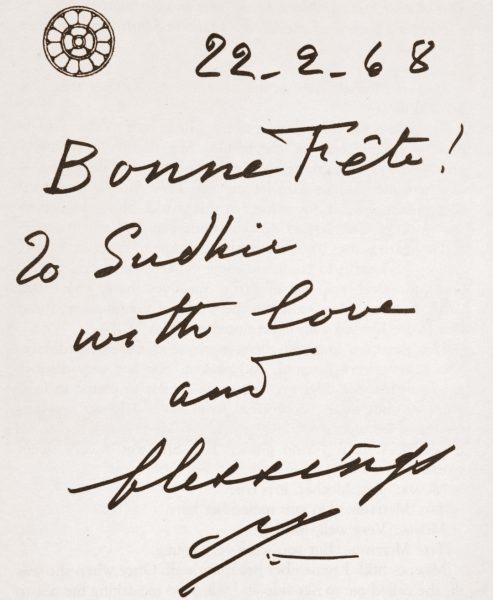 22-2-68
Bonne Fête!
To Sudhir
with love
and
blessings